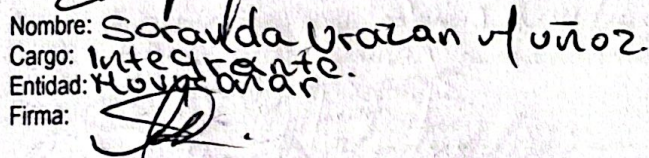 Nombre: Sorayda Urazan Muñoz.
Cargo: Integrante.
Entidad:
Firma: